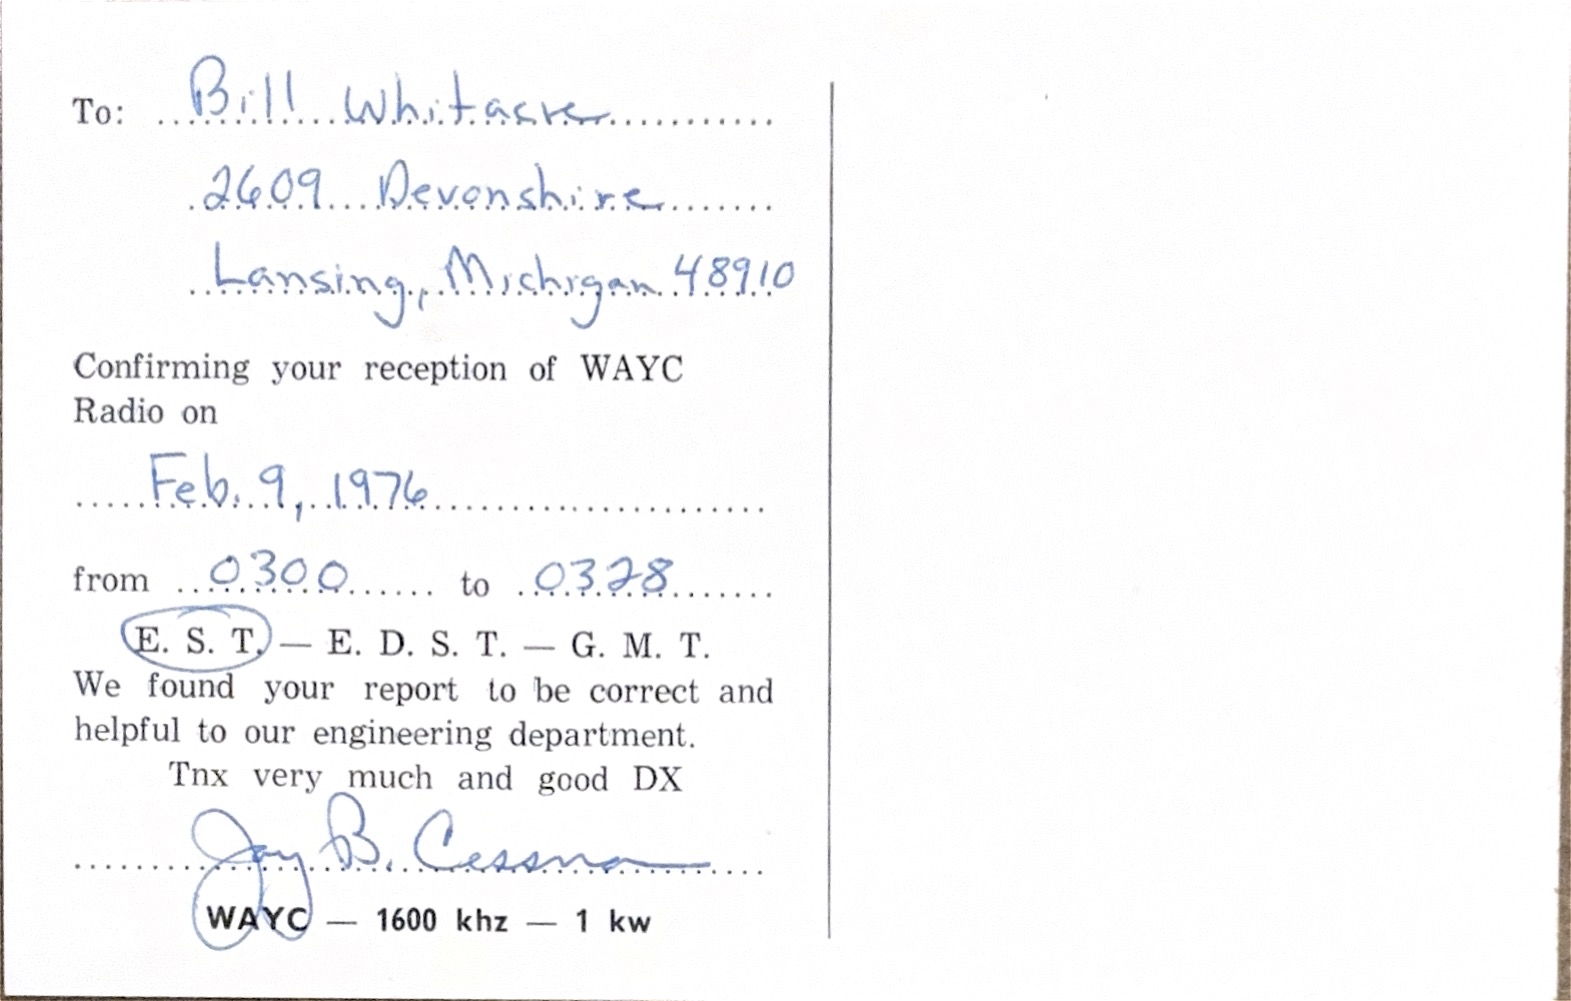 To: Bill Whitacre
2609 Devonshire
Lansing, Michigan 48910
Confirming your reception of WAYC
Radio on
Feb. 9, 1976
from 0300 to 0328
E. S. T. — E. D. S. T. — G. M. T.
We found your report to be correct and
helpful to our engineering department.
Tnx very much and good DX
Jay B. Cessna
WAYC — 1600 khz — 1 kw